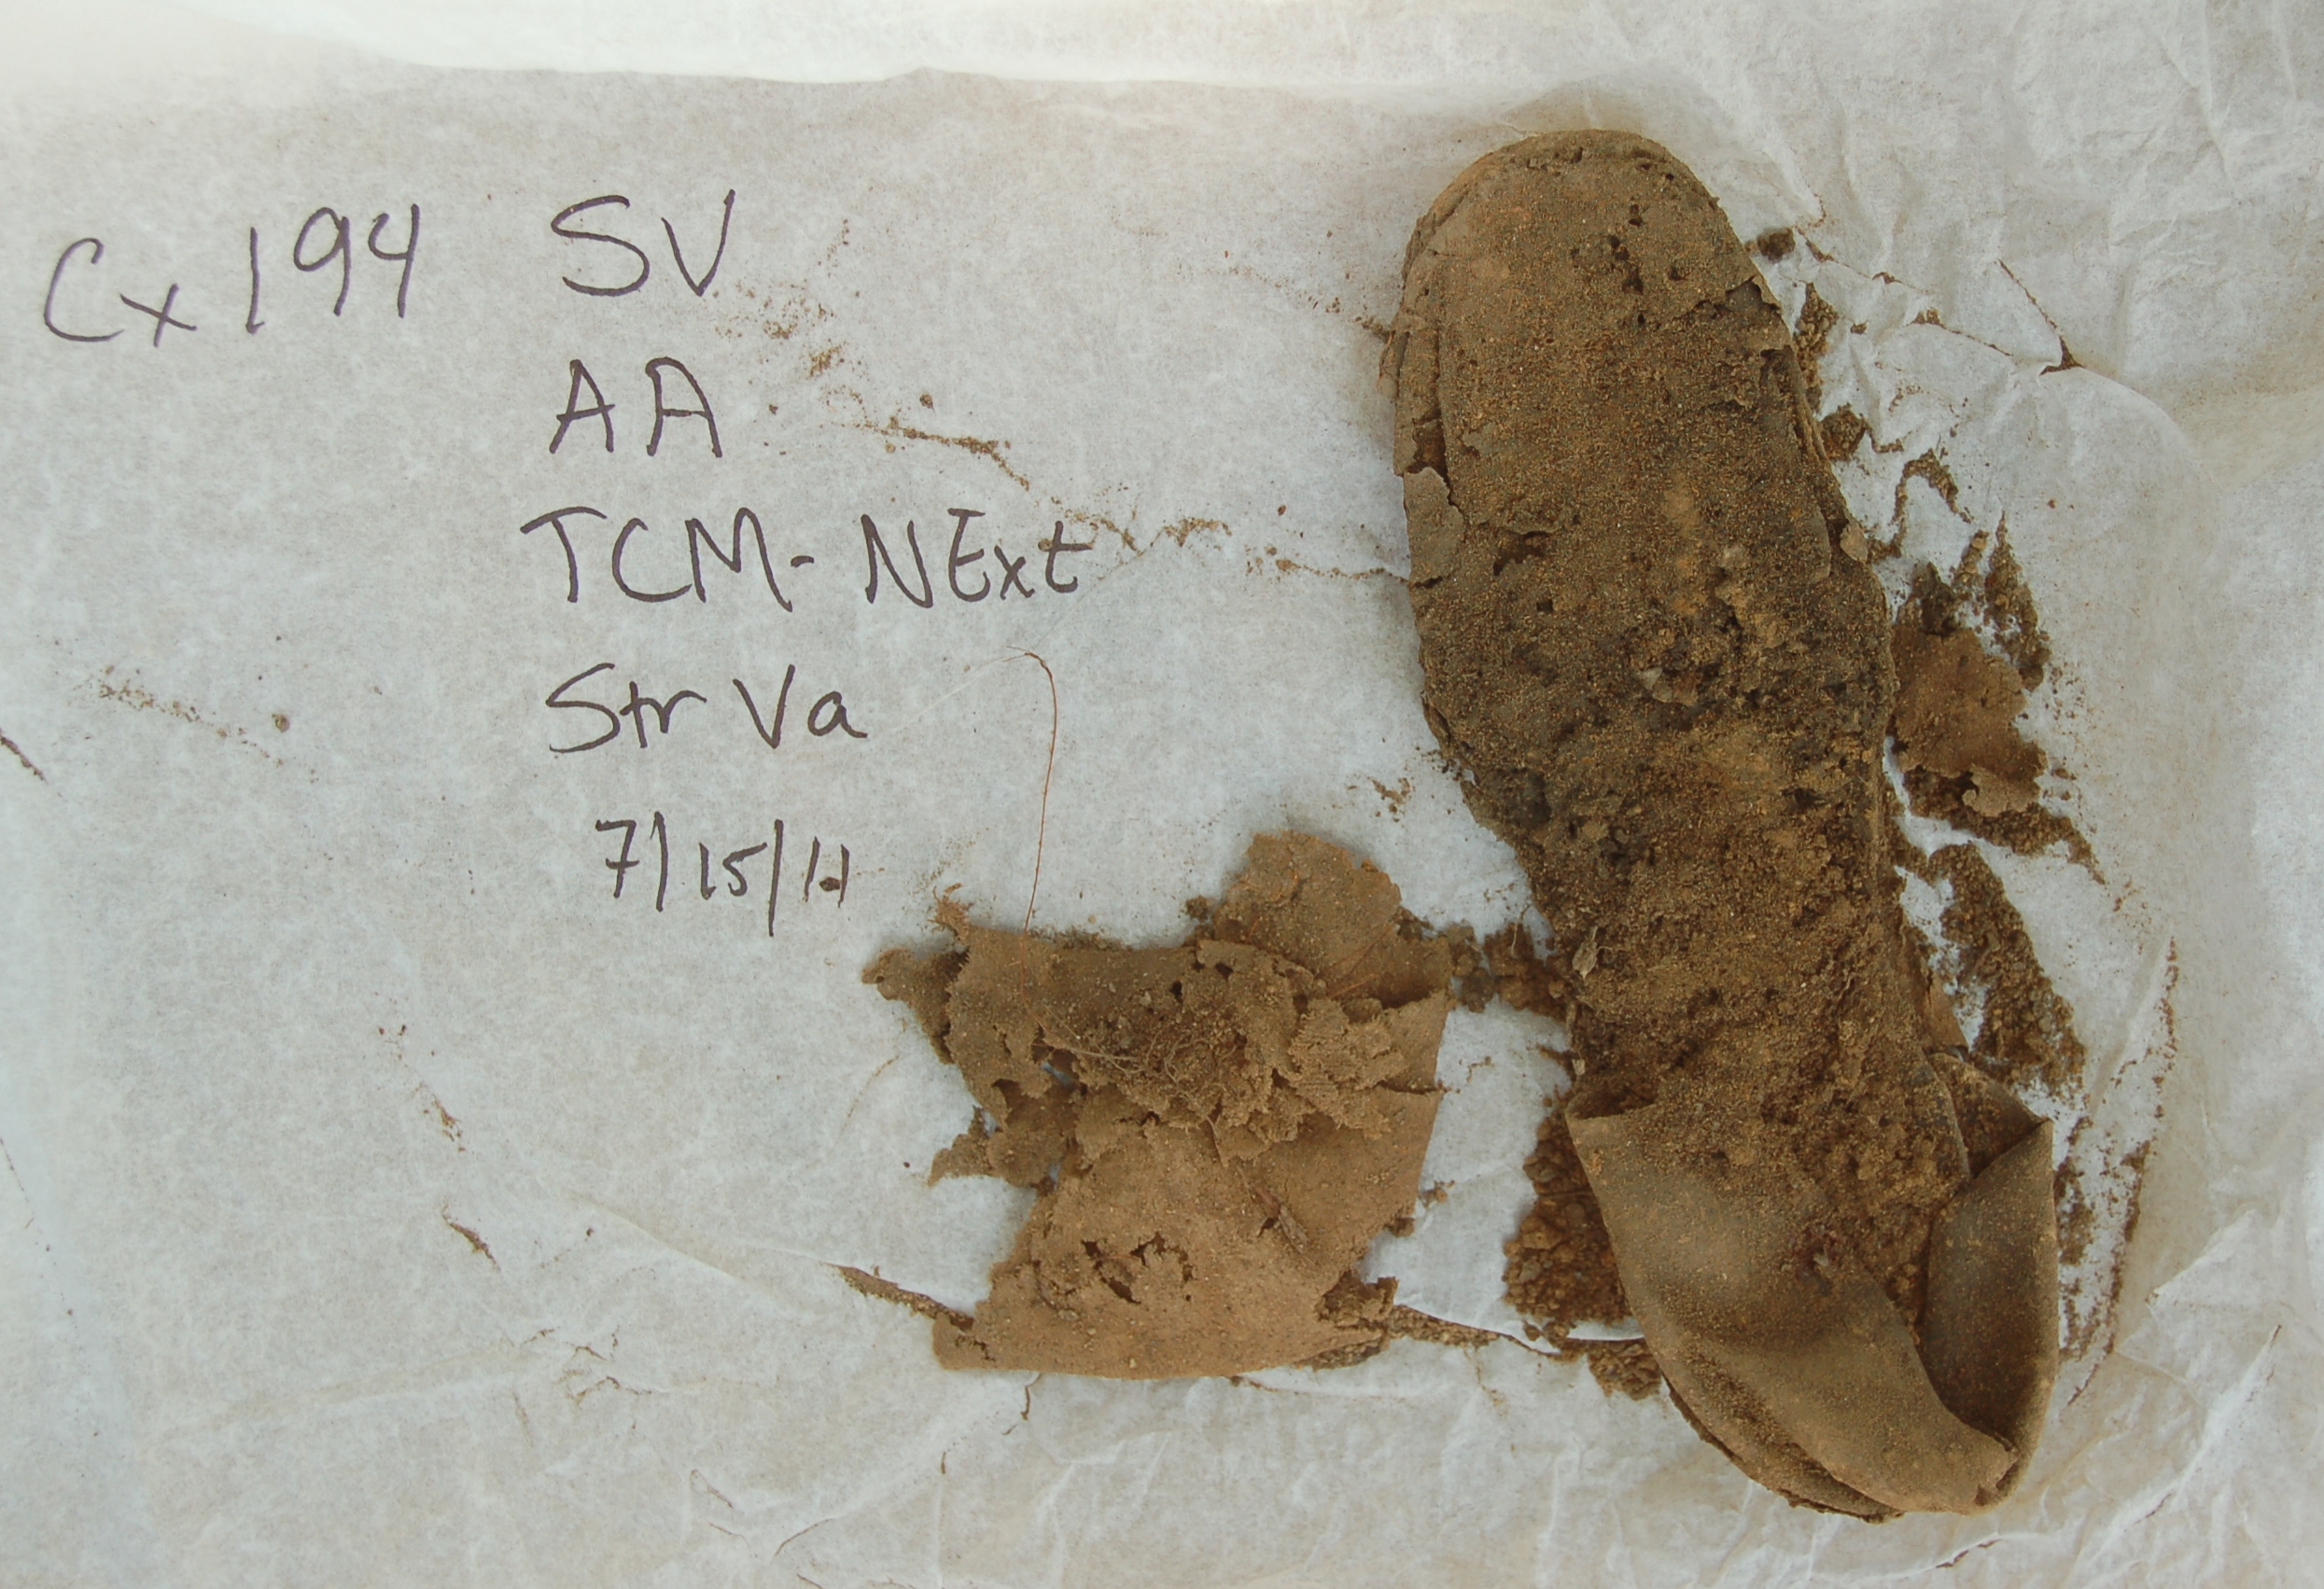 Cx 194 SV
AA
TCM-NExt
Str Va
7/15/11